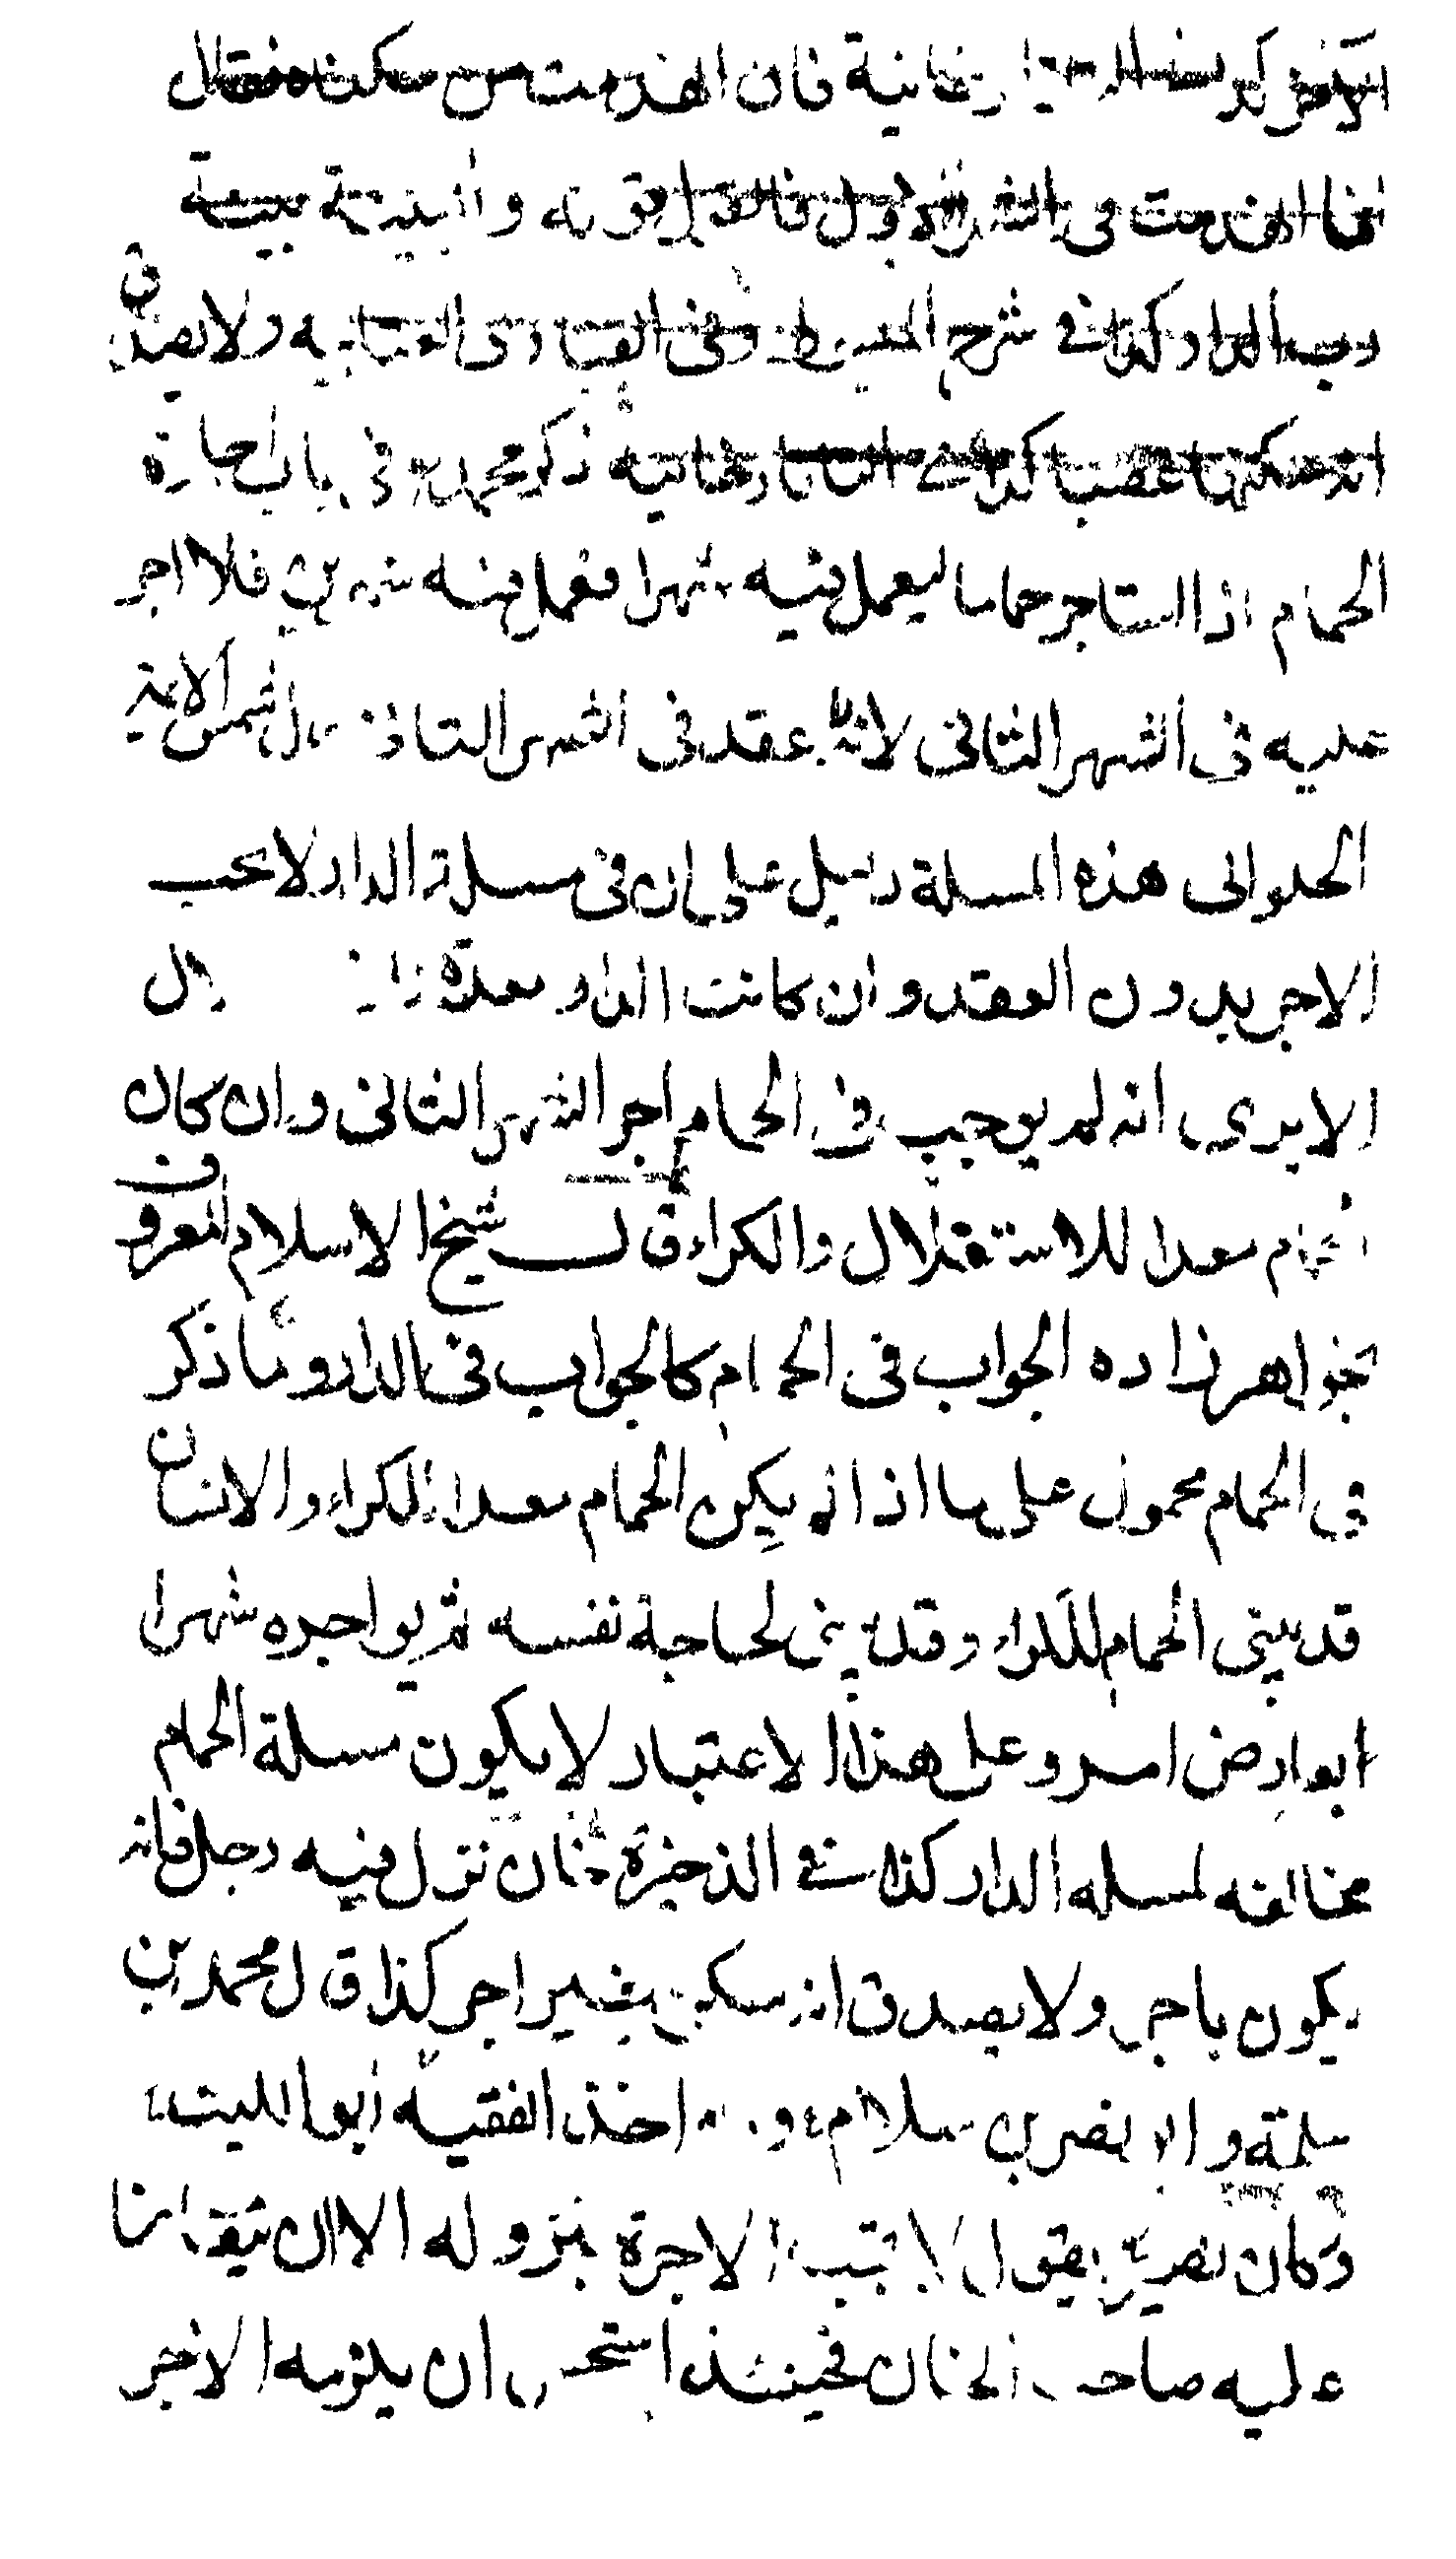 الاخر كذا في التتارخانية فان انهدمت من سكناه فقال
انما انهدمت في الشهر الاول فالقول قوله والبينة بينة
رب الدار كذا في شرح المبسوط وفي الفتاوى العتابيه ولا يصدق
انه سكنها غصبا كذا في التتارخانيه ذكر محمد رح في باب اجارة
الحمام اذا استاجر حماما ليعمل فيه شهرا فعمل فيه شهرين فلا اجر
عليه في الشهر الثاني لانه عقد في الشهر الثاني قال شمس الايمة
الحلواني هذه المسلة دليل على ان في مسلة الدار لا يجب
الاجر بدون العقد وان كانت الدار معدة قال
الا يرى انه لم يوجب في الحمام اجر الشهر الثاني وان كان
الحمام معدا للاستغلال والكراء قال شيخ الاسلام المعروف
بخواهر زاده الجواب في الحمام كالجواب في الدار وما ذكر
في الحمام محمول على ما اذا لم يكن الحمام معدا للكراء والانسان
قد يبني الحمام للكراء وقد يبنى لحاجة نفسه ثم يواجره شهرا
ابعارض امر وعلى هذا الاعتبار لا يكون مسلة الحمام
مخالفه لمسله الدار كذا في الذخيرة خان نزل فيه رجل فانه
يكون باجر ولا يصدق انه سكن بغير اجر كذا قال محمد بن
سلمة وابو نصر بن سلام وبه اخذ الفقيه ابو الليث
وكان نصير يقول لا تجب الاجرة بنزوله الا ان تقاضا
عليه صاحب الخان فحينئذ استحسن ان يلزمه الاجر